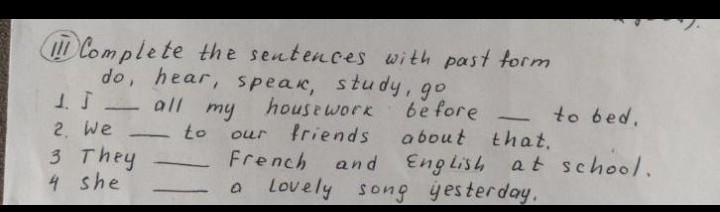 III Complete the sentences with past form
do, hear, speak, study, go
1. I — all my housework before — to bed.
2. We — to our friends about that.
3 They — French and English at school.
4 She — a lovely song yesterday.